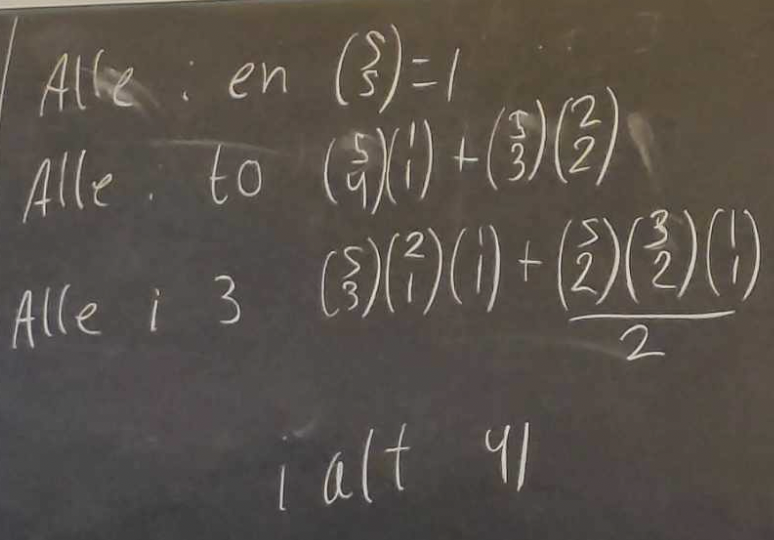 Alle i en (5 5) = 1
Alle i to (5 4)(1 1) + (5 3)(2 2)
Alle i 3 (5 3)(2 1)(1 1) + (5 2)(3 2)(1 1) / 2
i alt 41